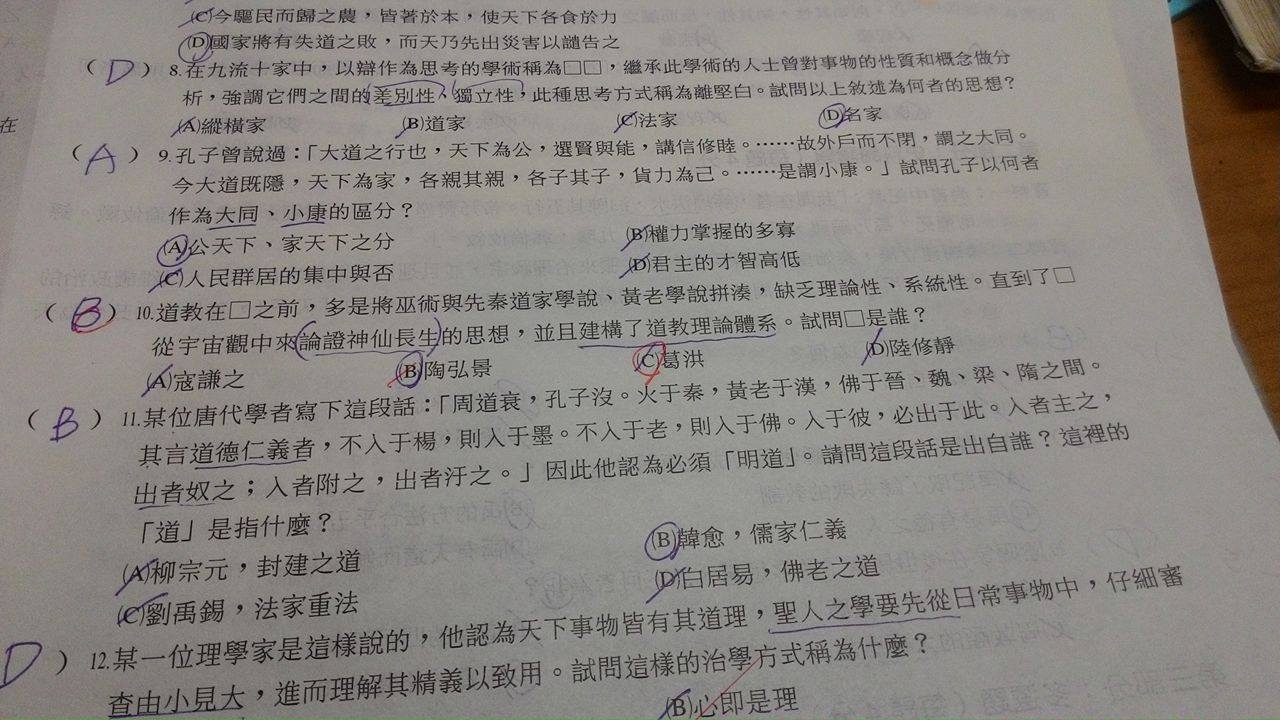 (C)今驅民而歸之農，皆著於本，使天下各食於力
(D)國家將有失道之敗，而天乃先出災害以譴告之
（D）8.在九流十家中，以辯作為思考的學術稱為□□，繼承此學術的人士曾對事物的性質和概念做分
析，強調它們之間的差別性、獨立性，此種思考方式稱為離堅白。試問以上敘述為何者的思想？
(A)縱橫家 (B)道家 (C)法家 (D)名家
（A）9.孔子曾說過：「大道之行也，天下為公，選賢與能，講信修睦。……故外戶而不閉，謂之大同。
今大道既隱，天下為家，各親其親，各子其子，貨力為己。……是謂小康。」試問孔子以何者
作為大同、小康的區分？
(A)公天下、家天下之分 (B)權力掌握的多寡
(C)人民群居的集中與否 (D)君主的才智高低
（B）10.道教在□之前，多是將巫術與先秦道家學說、黃老學說拼湊，缺乏理論性、系統性。直到了□
從宇宙觀中來論證神仙長生的思想，並且建構了道教理論體系。試問□是誰？
(A)寇謙之 (B)陶弘景 (C)葛洪 (D)陸修靜
（B）11.某位唐代學者寫下這段話：「周道衰，孔子沒。火于秦，黃老于漢，佛于晉、魏、梁、隋之間。
其言道德仁義者，不入于楊，則入于墨。不入于老，則入于佛。入于彼，必出于此。入者主之，
出者奴之；入者附之，出者汙之。」因此他認為必須「明道」。請問這段話是出自誰？這裡的
「道」是指什麼？
(A)柳宗元，封建之道 (B)韓愈，儒家仁義
(C)劉禹錫，法家重法 (D)白居易，佛老之道
D）12.某一位理學家是這樣說的，他認為天下事物皆有其道理，聖人之學要先從日常事物中，仔細審
查由小見大，進而理解其精義以致用。試問這樣的治學方式稱為什麼？
(B)心即是理
在